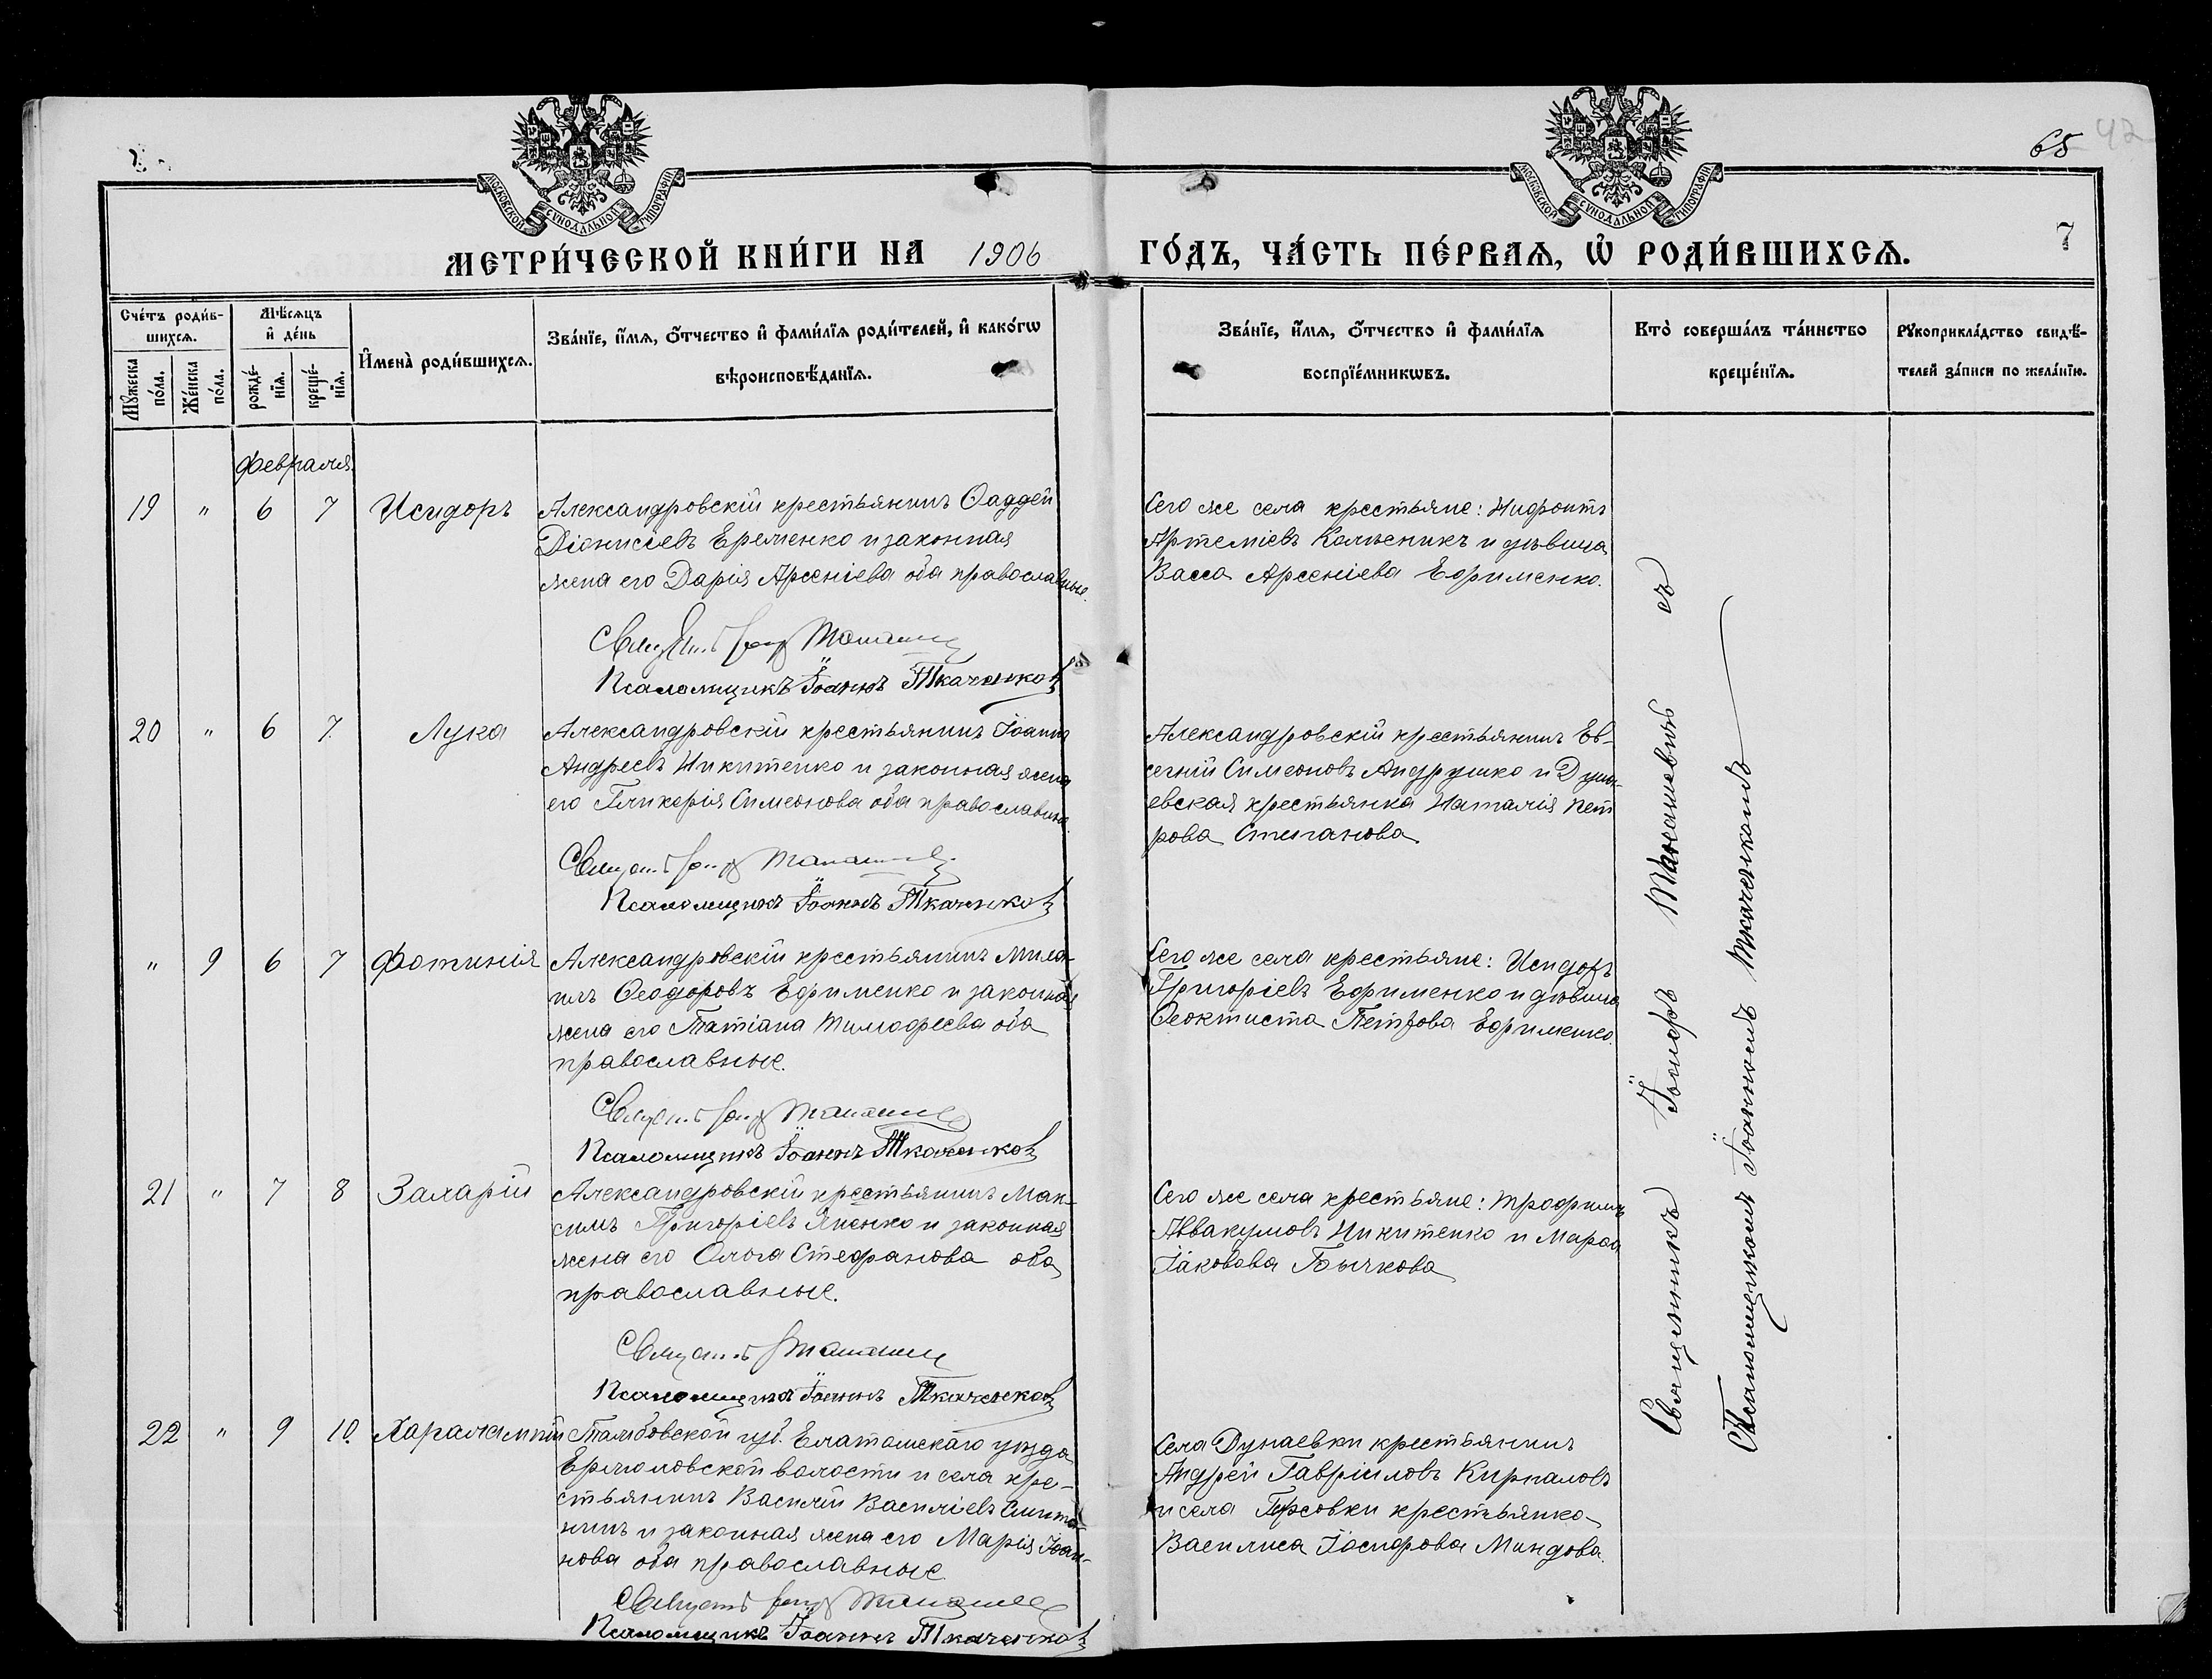 МОСКОВСКОЙ СѴНОДАЛЬНОЙ ТИПОГРАФІИ
МОСКОВСКОЙ СѴНОДАЛЬНОЙ ТИПОГРАФІИ
65 42
7
МЕТРИ́ЧЕСКОЙ КНИ́ГИ НА 1906 ГО́ДЪ, ЧА́СТЬ ПЕ́РВАѦ, Ѡ҆ РОДИ́ВШИХСѦ.
Сче́тъ роди́в-
шихсѧ.
Мꙋ́жеска
по́ла.
Же́нска
по́ла.
Мѣ́сѧцъ
и҆ де́нь
рожде́-
нїѧ.
креще́-
нїѧ.
И҆мена̀ роди́вшихсѧ.
Зва́нїе, и҆́мѧ, ѻ҆́тчество и҆ фами́лїѧ роди́телей, и҆ како́гѡ
вѣроисповѣ́данїѧ.
Зва́нїе, и҆́мѧ, ѻ҆́тчество и҆ фами́лїѧ
воспрїе́мникѡвъ.
Кто̀ соверша́лъ та́инство
креще́нїѧ.
Рꙋкоприкла́дство свидѣ́-
телей за́писи по жела́нїю.
Февраля
19 " 6 7 Исидоръ
Александровскій крестьянинъ Ѳаддей
Діонисіевъ Еременко и законная
жена его Дарія Арсеніева оба православные.
Псаломщикъ Іоаннъ Ткаченковъ
Сего же села крестьяне: Нифонтъ
Артеміевъ и дѣвица
Васса Арсеніева Ефименко.
20 " 6 7. Лука
Александровскій крестьянинъ Іоаннъ
Андреевъ Никитенко и законная жена
его Гликерія Симеонова оба православные.
Псаломщикъ Іоаннъ Ткаченковъ
Александровскій крестьянинъ Ев-
геній Симеоновъ Андрушко и Дуна-
евская крестьянка Наталія Пет
рова Степанова
" 9 6 7 Фотинія
Александровскій крестьянинъ Миха-
илъ Ѳеодоровъ Ефименко и законная
жена его Татіана Тимофеева оба
православные.
Псаломщикъ Іоаннъ Ткаченковъ
Сего же села крестьяне: Исидоръ
Григоріевъ Ефименко и дѣвица
Ѳеоктиста Петрова Ефименко.
21 " 7 8 Захарій
Александровскій крестьянинъ Мак-
симъ Григоріевъ Яненко и законная
жена его Ольга Стефанова оба
православные.
Псаломщикъ Іоаннъ Ткаченковъ
Сего же села крестьяне: Трофимъ
Аввакумовъ Никитенко и Марѳа
Іаковова Бычкова
22 " 9 10. Харалампій
Тамбовской губ. Елатомскаго уѣзда
Ермоловской волости и села кре-
стьянинъ Василій Василіевъ
и законная жена его Марія Іоан-
нова оба православные
Псаломщикъ Іоаннъ Ткаченковъ
Села Дунаевки крестьянинъ
Андрей Гавріиловъ Кирпаловъ
и села крестьянка
Василиса Іосифова Миндова.
Священникъ Іосифъ съ
Псаломщикомъ Іоанномъ Ткаченковымъ